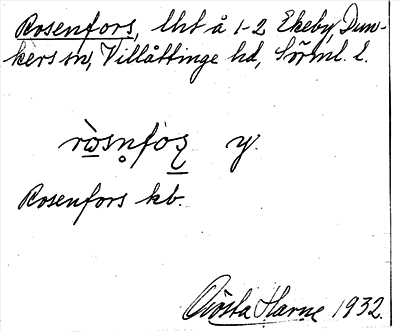 Rosenfors, lht å 1-2 Ekeby, Dun-
kers sn, Villåttinge hd, Sörml. l.
y.
Rosenfors kb.
Gösta Harne 1932.